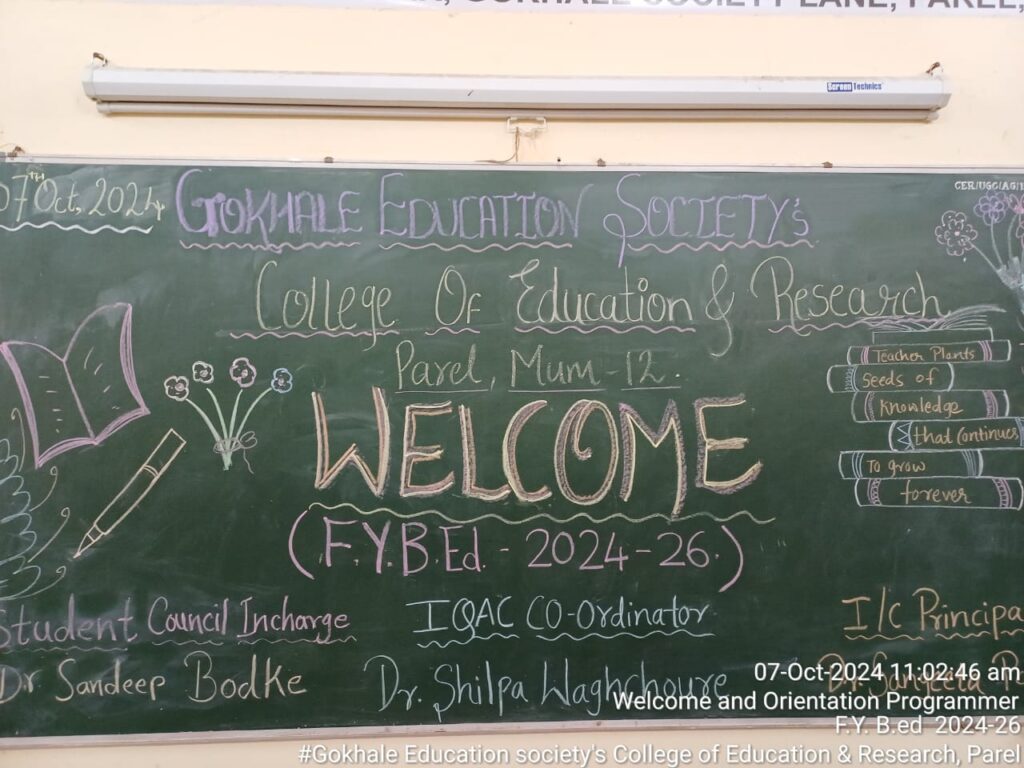 GOKHALE SOCIETY LANE, PAREL,
Screen Technics
07TH Oct, 2024
GOKHALE EDUCATION SOCIETY'S
CER/UGC/AG/
College Of Education & Research
Parel, Mum-12.
WELCOME
(F.Y.B.Ed. - 2024-26.)
Teacher Plants
Seeds of
Knowledge
that Continues
To grow
forever
Student Council Incharge
Dr. Sandeep Bodke
IQAC CO-Ordinator
Dr. Shilpa Waghchoure
I/C Principa
Dr. Sangeeta
07-Oct-2024 11:02:46 am
Welcome and Orientation Programmer
F.Y. B.ed 2024-26
#Gokhale Education society's College of Education & Research, Parel